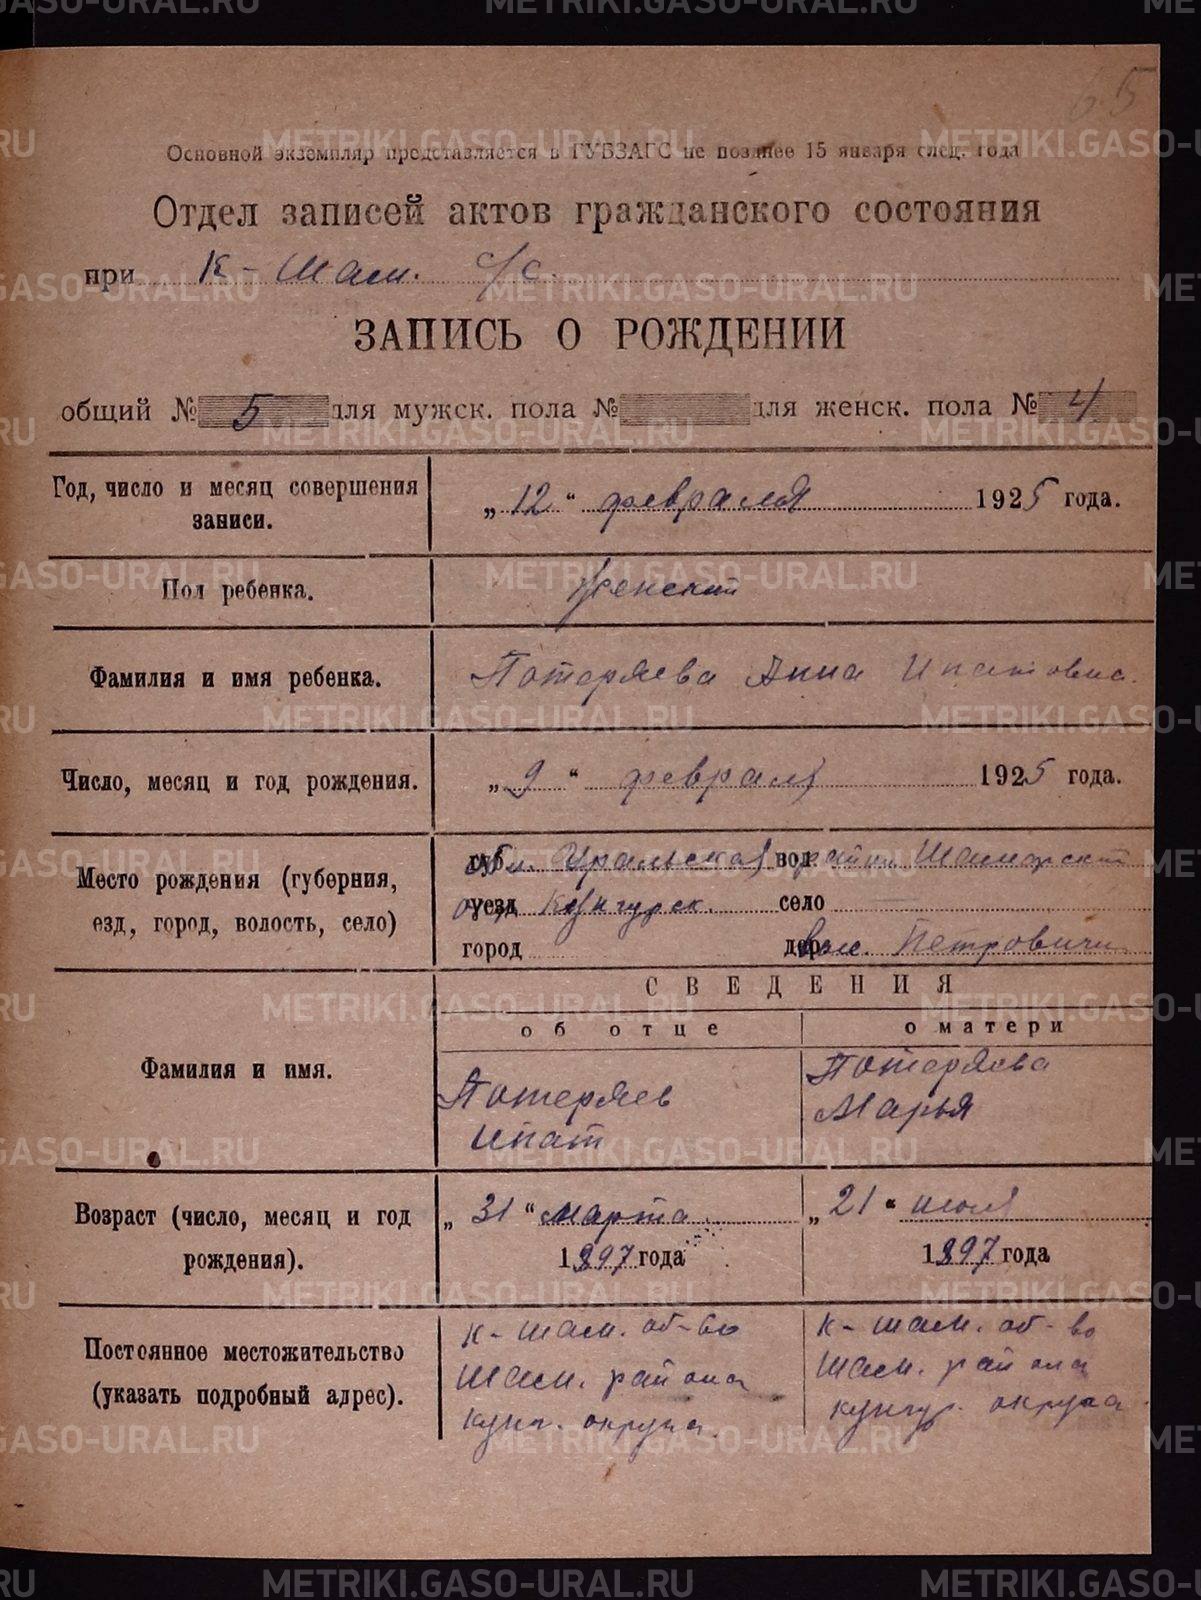 65
Основной экземпляр представляется в ГУБЗАГС не позднее 15 января след. года
Отдел записей актов гражданского состояния
при К-Шам. с/с.
ЗАПИСЬ О РОЖДЕНИИ
общий № 5 для мужск. пола № для женск. пола № 4
Год, число и месяц совершения записи.
„12“ февраля 1925 года.
Пол ребенка.
Женский
Фамилия и имя ребенка.
Потеряева Анна Ипатовна.
Число, месяц и год рождения.
„9“ февраля 1925 года.
Место рождения (губерния,
езд, город, волость, село)
обл. Уральская район Шамарский
уезд Кунгурск. село
город Петровичи
СВЕДЕНИЯ
об отце
о матери
Фамилия и имя.
Потеряев
Ипат
Потеряева
Марья
Возраст (число, месяц и год
рождения).
„31“ марта
1897 года
„21“ июля
1897 года
Постоянное местожительство
(указать подробный адрес).
К-шам. об-во
Шам. района
кунг. округа.
К-шам. об-во
Шам. района
кунгур. округа
METRIKI.GASO-URAL.RU